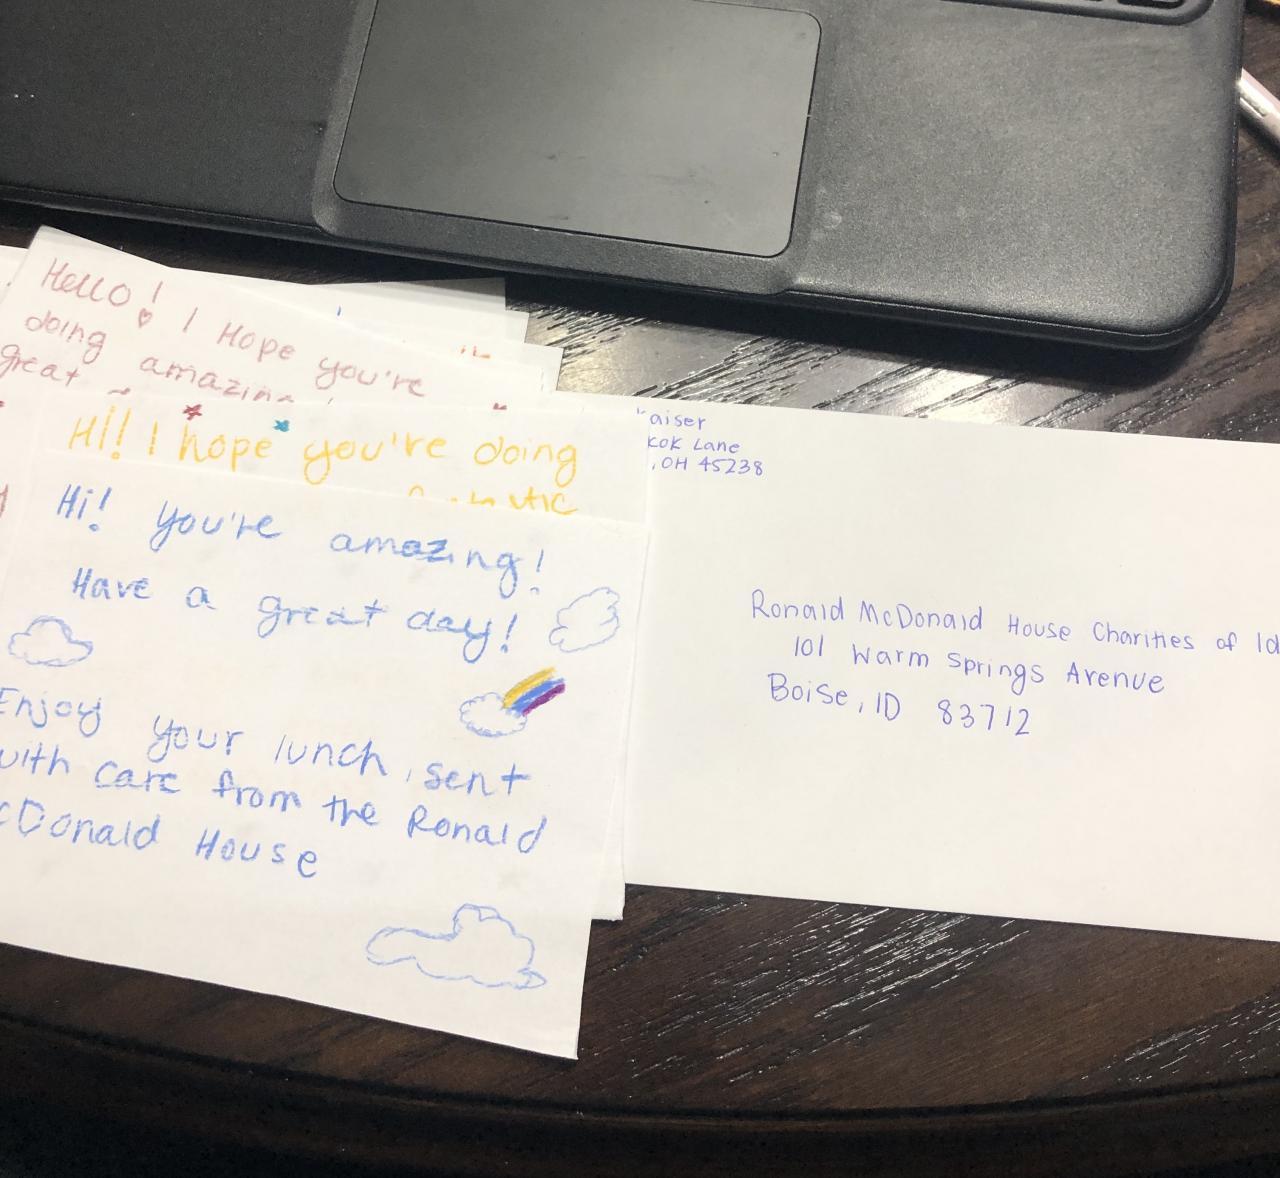 Hello! I Hope you're
doing amazing
great
Hi!! I hope you're doing
Hi! you're amazing!
Have a great day!
Enjoy your lunch, sent
with care from the Ronald
McDonald House
aiser
Lane
, OH 45238
Ronald McDonald House Charities of Id
101 Warm Springs Avenue
Boise, ID 83712